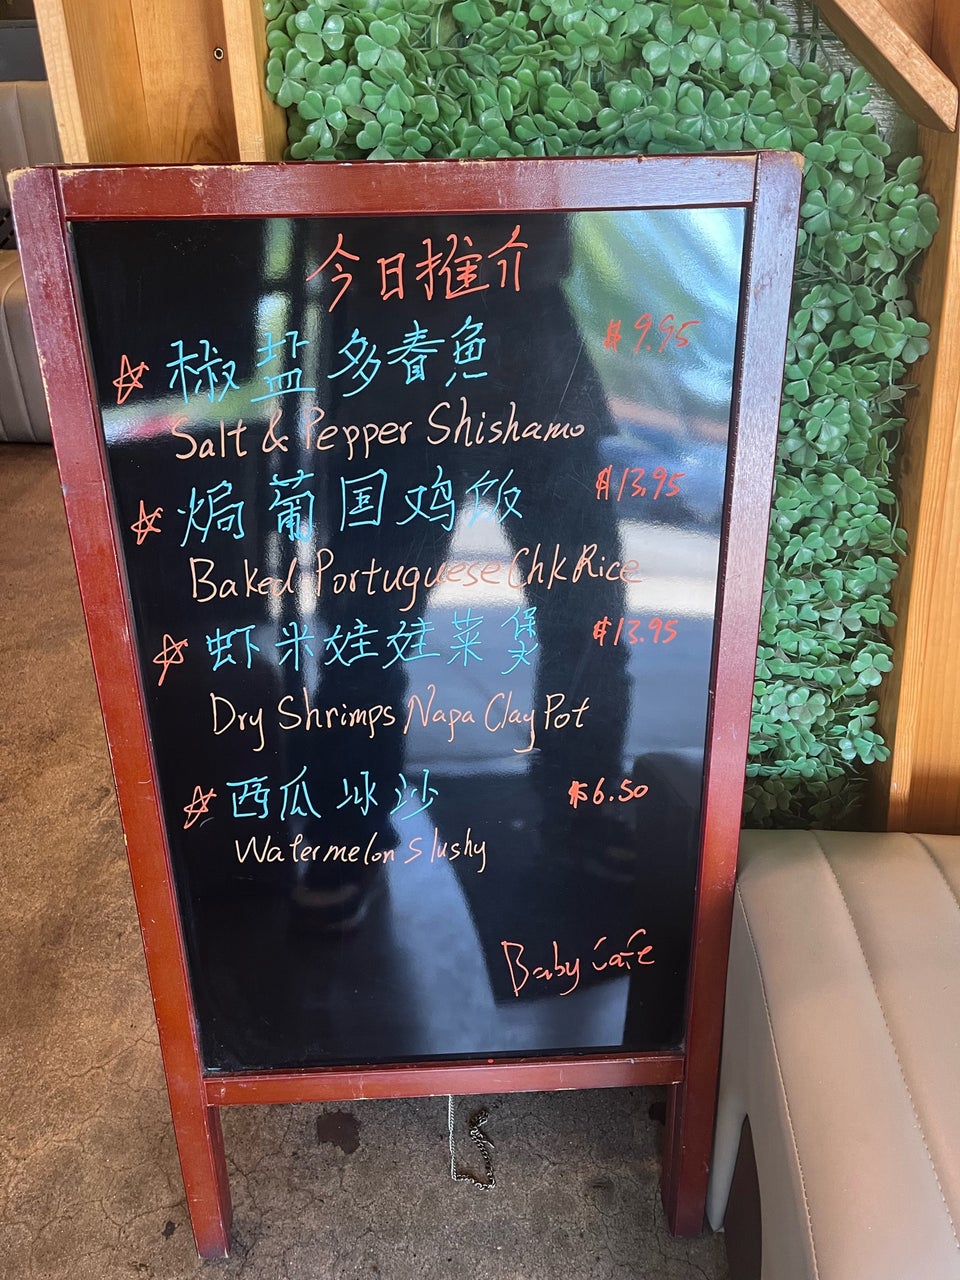 今日推介
☆ 椒盐多春鱼 $9.95
Salt & Pepper Shishamo
☆ 焗葡国鸡饭 $13.95
Baked Portuguese Chk Rice
☆ 虾米娃娃菜煲 $13.95
Dry Shrimps Napa Clay Pot
☆ 西瓜冰沙 $6.50
Watermelon Slushy
Baby Cafe